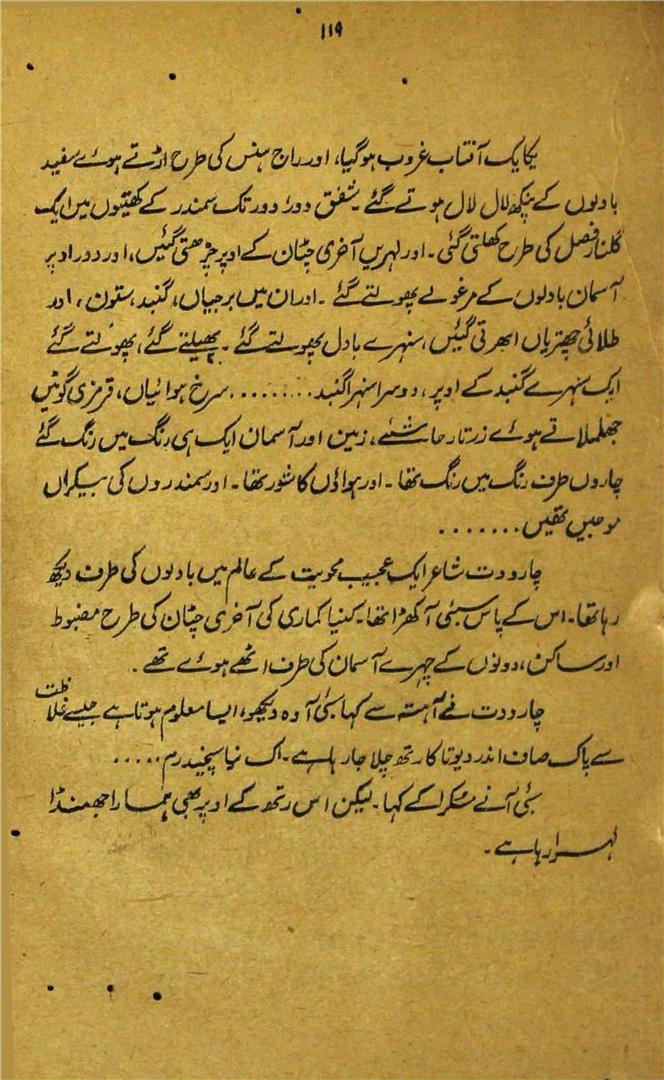 ۱۱۹
یکایک آفتاب غروب ہوگیا، اور راج ہنس کی طرح اڑتے ہوئے سفید
بادلوں کے پنکھ لال لال ہوتے گئے۔ شفق دور دور تک سمندر کے کھیتوں میں ایک
گلنار فصل کی طرح کھلتی گئی۔ اور لہریں آخری چٹان کے اوپر چڑھتی گئیں، اور دور اوپر
آسمان بادلوں کے مرغولے پھولتے گئے۔ اور ان میں برجیاں، گنبد، ستون، اور
طلائی چھتریاں ابھرتی گئیں، سنہرے بادل پھولتے گئے۔ پھیلتے گئے، پھولتے گئے
ایک سنہرے گنبد کے اوپر، دوسرا سنہرا گنبد......... سرخ ہوائیاں، قرمزی گوٹیں
جھلملاتے ہوئے زرتار حاشئے، زمین اور آسمان ایک ہی رنگ میں رنگ گئے
چاروں طرف رنگ میں رنگ تھا۔ اور ہواؤں کا شور تھا۔ اور سمندروں کی بیکراں
موجیں تھیں.......
چارودت شاعر ایک عجیب محویت کے عالم میں بادلوں کی طرف دیکھ
رہا تھا۔ اس کے پاس سبئی آ کھڑا تھا۔ کنیا کماری کی آخری چٹان کی طرح مضبوط
اور ساکن، دونوں کے چہرے آسمان کی طرف اٹھے ہوئے تھے۔
چارودت نے آہستہ سے کہا سبئی آ وہ دیکھو، ایسا معلوم ہوتا ہے جیسے غلاظت
سے پاک صاف اندر دیوتا کا رتھ چلا جا رہا ہے۔ اک نیا سچیندرم.....
سبئی آنے مسکرا کے کہا۔ لیکن اس رتھ کے اوپر بھی ہمارا جھنڈا
لہرا رہا ہے۔